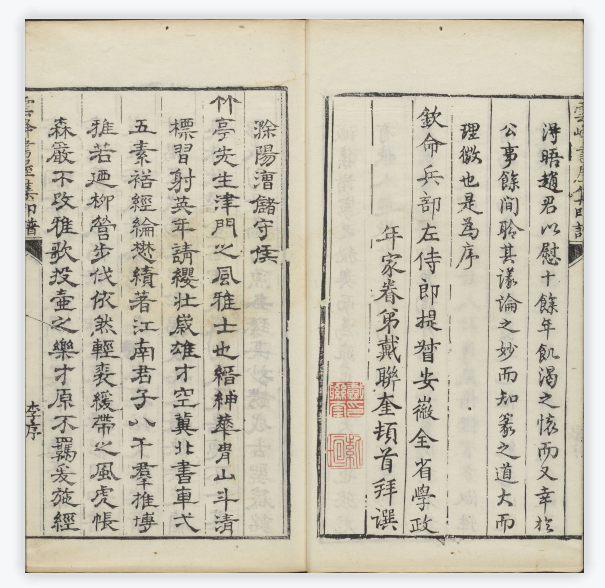 得晤趙君以慰十餘年飢渴之懷而又幸於
公事餘間聆其議論之妙而知篆之道大而
理微也是為序
欽命兵部左侍郎提督安徽全省學政
年家眷弟戴聯奎頓首拜譔
滁陽漕儲守候
竹亭先生津門之風雅士也縉紳華胄山斗清
標習射英年請纓壯歲雄才空冀北書車弍
五素褡經綸懋績著江南君子八千羣推博
雅若廼柳營步伐依然輕裘緩帶之風虎帳
森嚴不改雅歌投壺之樂才原不羈爰施經
李序